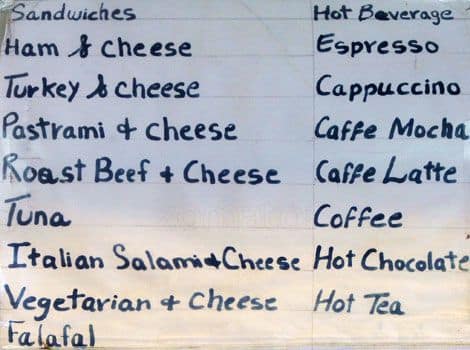 Sandwiches
Ham & cheese
Turkey & cheese
Pastrami & cheese
Roast Beef & Cheese
Tuna
Italian Salami & Cheese
Vegetarian & cheese
Falafal
Hot Beverage
Espresso
Cappuccino
Caffe Mocha
Caffe Latte
Coffee
Hot Chocolate
Hot Tea